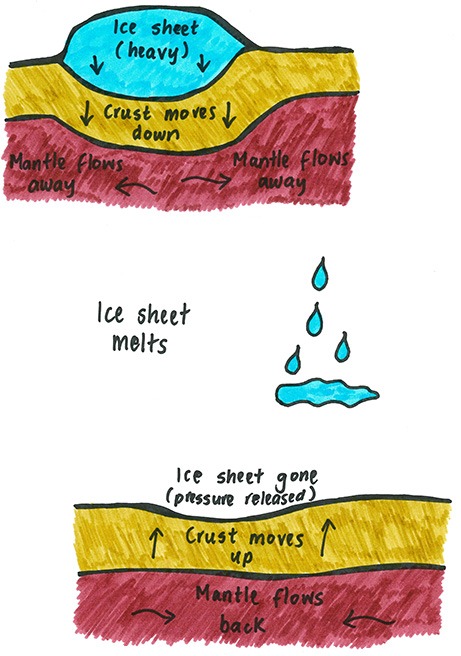 Ice sheet
(heavy)
Crust moves
down
Mantle flows
away
Mantle flows
away
Ice sheet
melts
Ice sheet gone
(pressure released)
Crust moves
up
Mantle flows
back